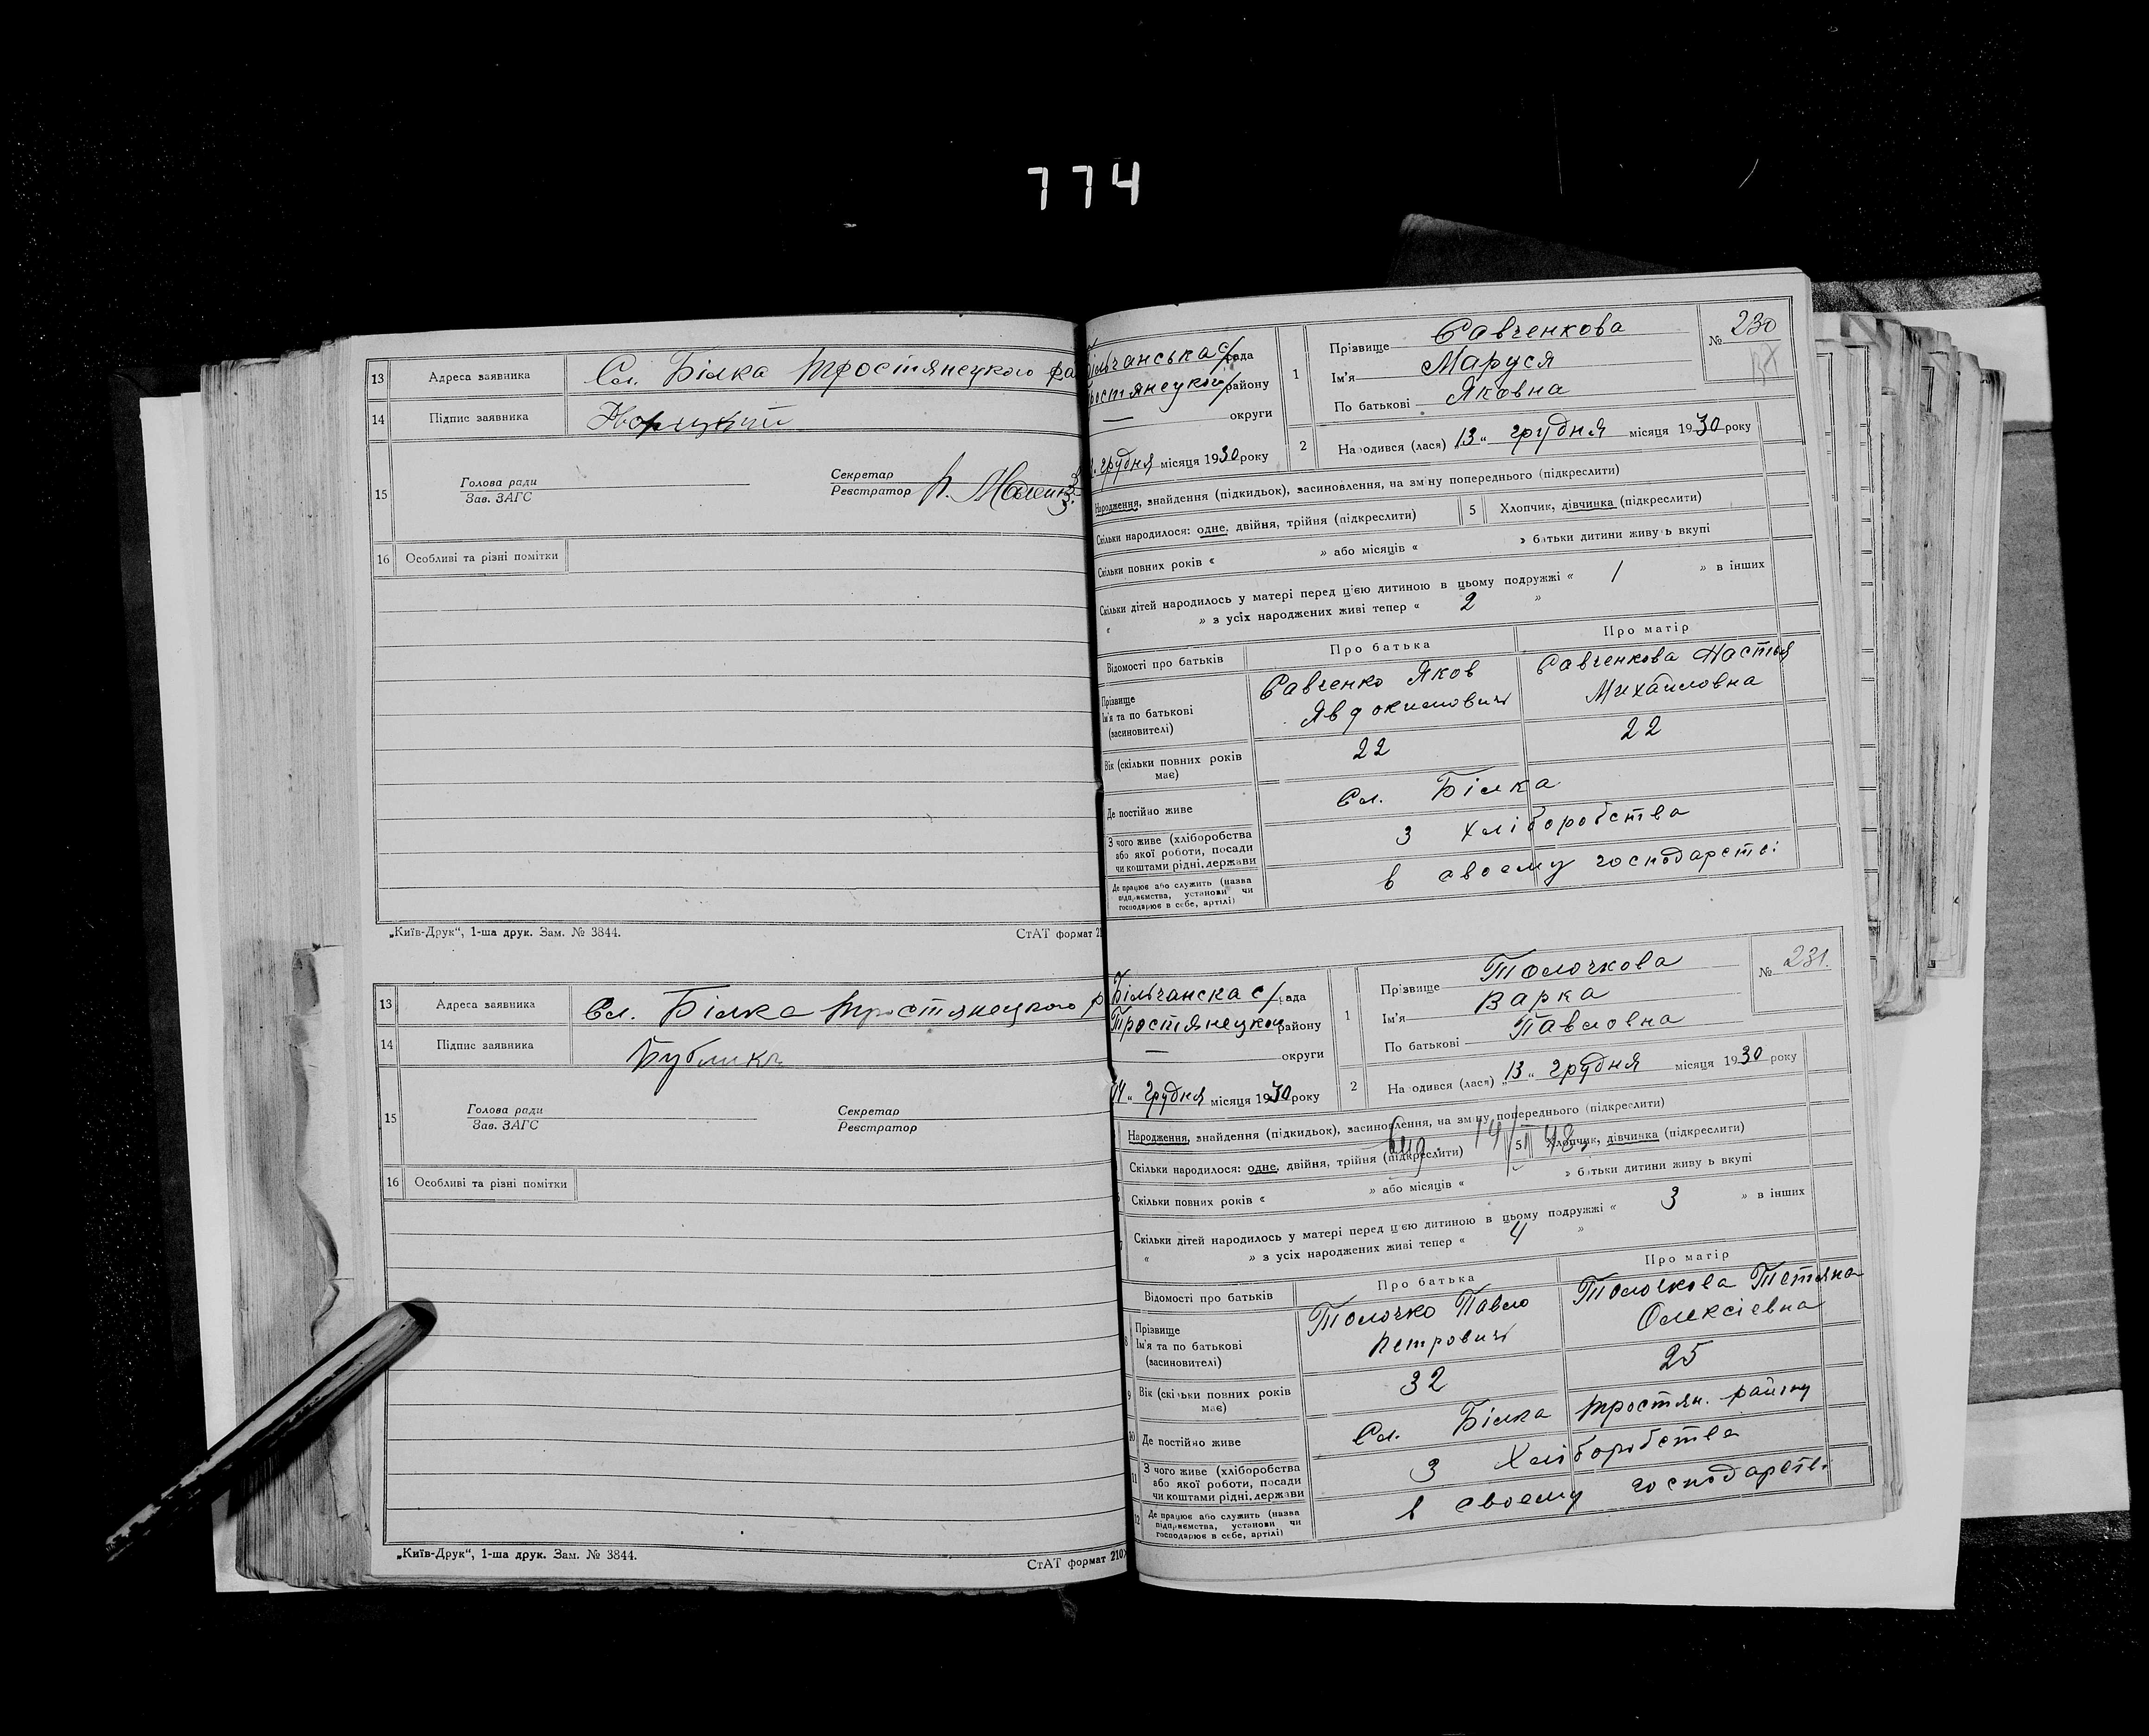 774
13 Адреса заявника Сл. Білка Тростянецкого ра
14 Підпис заявника
15 Голова ради
Зав. ЗАГС
Секретар
Реєстратор
16 Особливі та різні помітки
„Київ-Друк“, 1-ша друк. Зам. № 3844. СтАТ формат 2
13 Адреса заявника Сл. Білка Тростянецкого р
14 Підпис заявника Бублик
15 Голова ради
Зав. ЗАГС
Секретар
Реєстратор
16 Особливі та різні помітки
„Київ-Друк“, 1-ша друк. Зам. № 3844. СтАТ формат 210
більчанська с/рада
ростянецкого району
— округи
грудня місяця 1930 року
1 Прізвище Савченкова
Ім'я Маруся
По батькові Яковна
№ 230
2 Народився (лася) 13 „ грудня місяця 1930 року
Народження, знайдення (підкидьок), засиновлення, на зміну попереднього (підкреслити)
Скільки народилося: одне, двійня, трійня (підкреслити) 5 Хлопчик, дівчинка (підкреслити)
Скільки повних років « » або місяців « » батьки дитини живуть вкупі
Скільки дітей народилось у матері перед цією дитиною в цьому подружжі « 1 » в інших
« » з усіх народжених живі тепер « 2 »
Відомості про батьків Про батька Про матір
Прізвище
Ім'я та по батькові
(засиновителі)
Савченко Яков
Явдокимович
Савченкова Настья
Михайловна
Вік (скільки повних років
має) 22 22
Де постійно живе Сл. Білка
З чого живе (хліборобства
або якої роботи, посади
чи коштами рідні, держави
З хліборобства
Де працює або служить (назва
підприємства, установи чи
господарює в себе, артілі)
в своему господарстві
Більчанска с/рада
Тростянецкого району
— округи
14 „ грудня місяця 1930 року
1 Прізвище Толочкова
Ім'я Варка
По батькові Павловна
№ 231.
2 Народився (лася) „13 „ грудня місяця 1930 року
Народження, знайдення (підкидьок), засиновлення, на зміну попереднього (підкреслити)
Скільки народилося: одне, двійня, трійня (підкреслити) 5 Хлопчик, дівчинка (підкреслити)
Скільки повних років « » або місяців « » батьки дитини живуть вкупі
Скільки дітей народилось у матері перед цією дитиною в цьому подружжі « 3 » в інших
« » з усіх народжених живі тепер « 4 »
Відомості про батьків Про батька Про матір
8 Прізвище
Ім'я та по батькові
(засиновителі)
Толочко Павло
Петрович
Толочкова Тетяна
Олексієвна
9 Вік (скільки повних років
має) 32 25
10 Де постійно живе Сл. Білка Тростян. району
11 З чого живе (хліборобства
або якої роботи, посади
чи коштами рідні, держави
З Хліборобства
12 Де працює або служить (назва
підприємства, установи чи
господарює в себе, артілі)
в своему господарстві